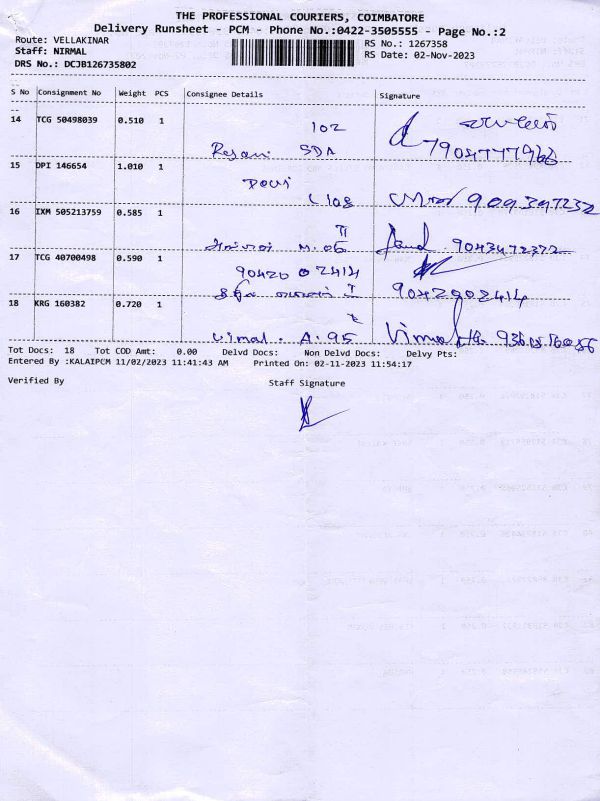 THE PROFESSIONAL COURIERS, COIMBATORE
Delivery Runsheet - PCM - Phone No.:0422-3505555 - Page No.:2
Route: VELLAKINAR
RS No.: 1267358
Staff: NIRMAL
RS Date: 02-Nov-2023
DRS No.: DCJB126735802
S No Consignment No Weight PCS Consignee Details Signature
14 TCG 50498039 0.510 1
102
SDA
15 DPI 146654 1.010 1
L 108
16 IXM 505213759 0.585 1
II
9043472372
17 TCG 40700498 0.590 1
90420 02414
I 9042902414
18 KRG 160382 0.720 1
Vimal. A. 95
Tot Docs: 18 Tot COD Amt: 0.00 Delvd Docs: Non Delvd Docs: Delvy Pts:
Entered By :KALAIPCM 11/02/2023 11:41:43 AM Printed On: 02-11-2023 11:54:17
Verified By Staff Signature